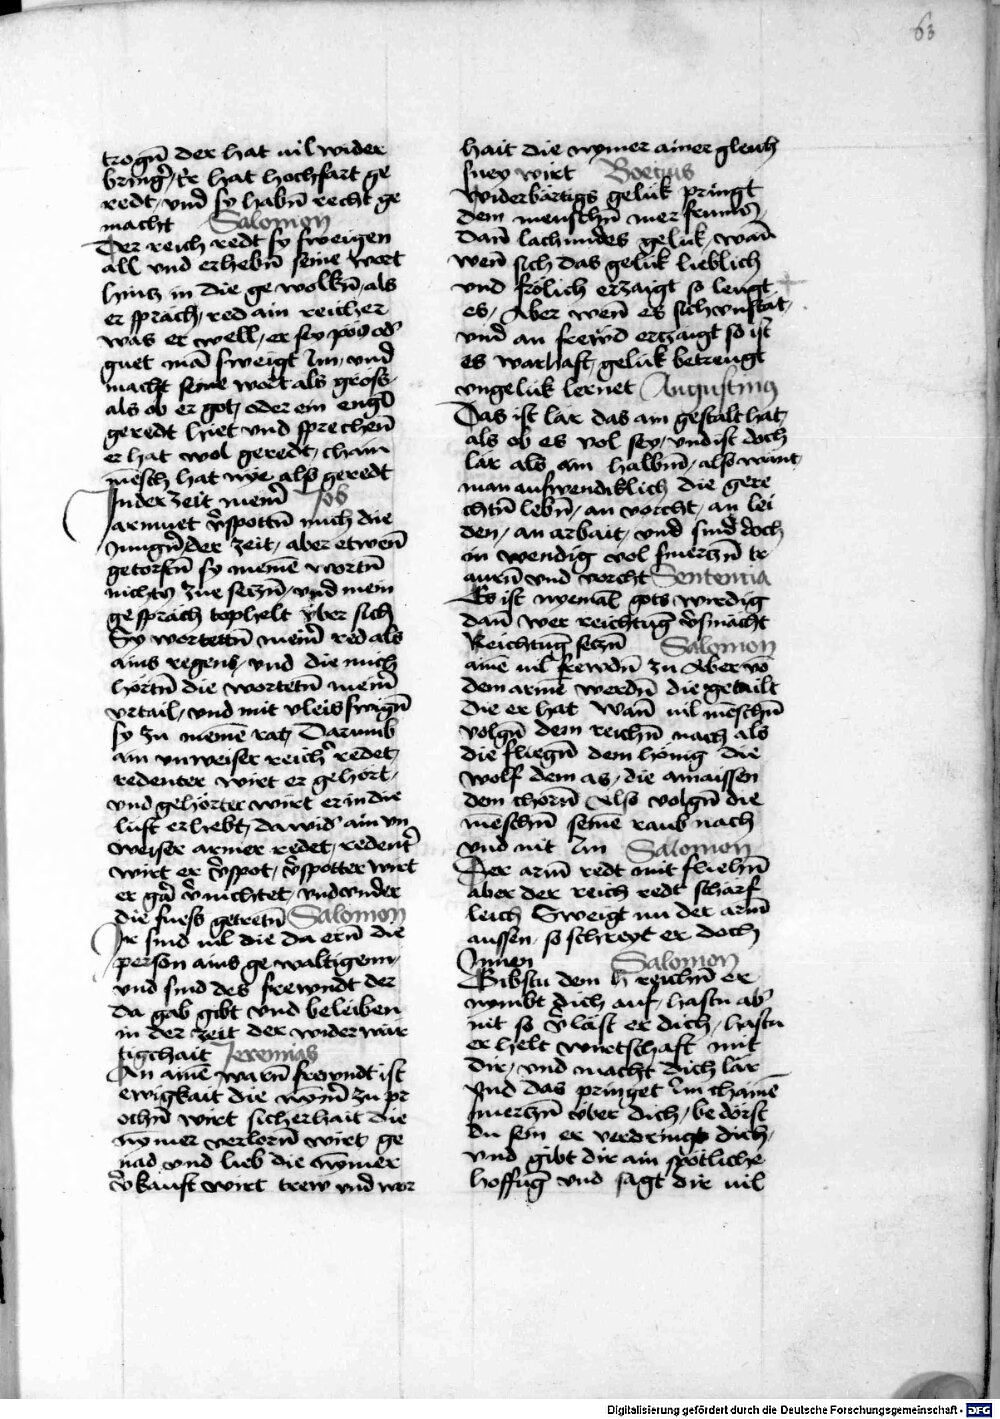 63
trogn̄ der hat uil wider
bringr̄, Er hat hochfart ge
redt, vnd sy habn̄ recht ge
macht Salomon
Der reich redt sy sweigen
all vnd erhebn̄ seine wort
hintz in die gewolkn̄, als
er sprach, red ain reicher
was er well, er sey pös od'
guet mā sweigt im, vnd
macht seine wort als gross,
als ob er got, oder ein engl
geredt hiet vnd sprechen̄
er hat wol geredt, chain
mēsch hat nye also geredt
In der zeit meinr̄ Job
armuet v̄spottn̄ mich die
Jungn̄ der zeit, aber etwen̄
getorstn̄ sy meinē wortn̄
nichts zue setzn̄, vnd mein
gesprach tophelt vber sich
Sy wortettn̄ meinr̄ red als
ains regens, vnd die mich
hörtn̄ die wortetn̄ meinr̄
vrtail, vnd mit vleis swign̄
sy zu meinē rat, Darumb
ain vnweiser reichr̄ redet,
redenter wirt er gehört,
vnd gehörter wirt er in die
luft erhebt, dawid' ain vn
weiser armer redet, redentr̄
wirt er v̄spot, v̄spotter wirt
er gā v̄nichtet, vnd vnder
die fuess getretn̄ Salomon
Ir sind uil die da ern̄ die
person ains gewaltigenn,
vnd sind des frewndt der
da gab gibt vnd beleiben
in der zeit der widerwär
tigchait Jeremias
An ainē warn̄ frewndt ist
ewigkait die nymr̄ zu pr
ochn̄ wirt sicherhait die
nymer verlorn̄ wirt ge
nad vnd lieb die nymer
v̄kauft wirt trew vnd wor
hait die nymer ainer gleich
suey wirt Boecius
Widerbärtigs gelük pringt
dem menschn̄ mer frumn̄,
dan̄ lachundes gelük, wan̄
wen̄ sich das gelük lieblich
vnd frölich erzaigt so leugt
es, Aber wen̄ es sich vnstät,
vnd an frewd ertzaigt so ist
es warhaft, gelük betreugt
vngelük lernet Augustinus
Das ist lär das ain gestalt hat,
als ob es vol sey, vnd ist doch
lär als ain halbm̄, also wänt
man auswendiklich die gere
chtn̄ lebn̄, an vorcht, an lei
den, an arbait, vnd sind doch
in wendig vol smertzn̄ tr
aurn̄ vnd vorcht Sentencia
Es ist nyemāt gots wirdig
dan̄ wer reichtug v̄smächt
Reichtug setzn̄ Salomon
ainē uil frewdn̄ zu Aber vō
dem armē werdn̄ die getailt
die er hat wan̄ uil mēschn̄
volgn̄ dem reichn̄ nach als
die fliegn̄ dem hönig die
wolf dem as, die amaissen
dem chorn̄ Also volgn̄ die
menschn̄ seinē raub nach
vnd nit im Salomon
Der arm̄ redt mit fliehn̄
aber der reich redt scharf
leich Sweigt nu der arm̄
aussen, so schreyt er doch
Innen Salomon
Gibstu dem h reichn̄ er
nymbt dich auf, hastu ab'
nit so v̄läst er dich, hastu
er helt wirtschaft mit
dir, vnd macht dich lär
Vnd das pringet im chainē
smertzn̄ vber dich, bedörft
du sein er verdringt dich,
vnd gibt dir ain spötliche
hoffūg vnd sagt dir uil
Digitalisierung gefördert durch die Deutsche Forschungsgemeinschaft - DFG